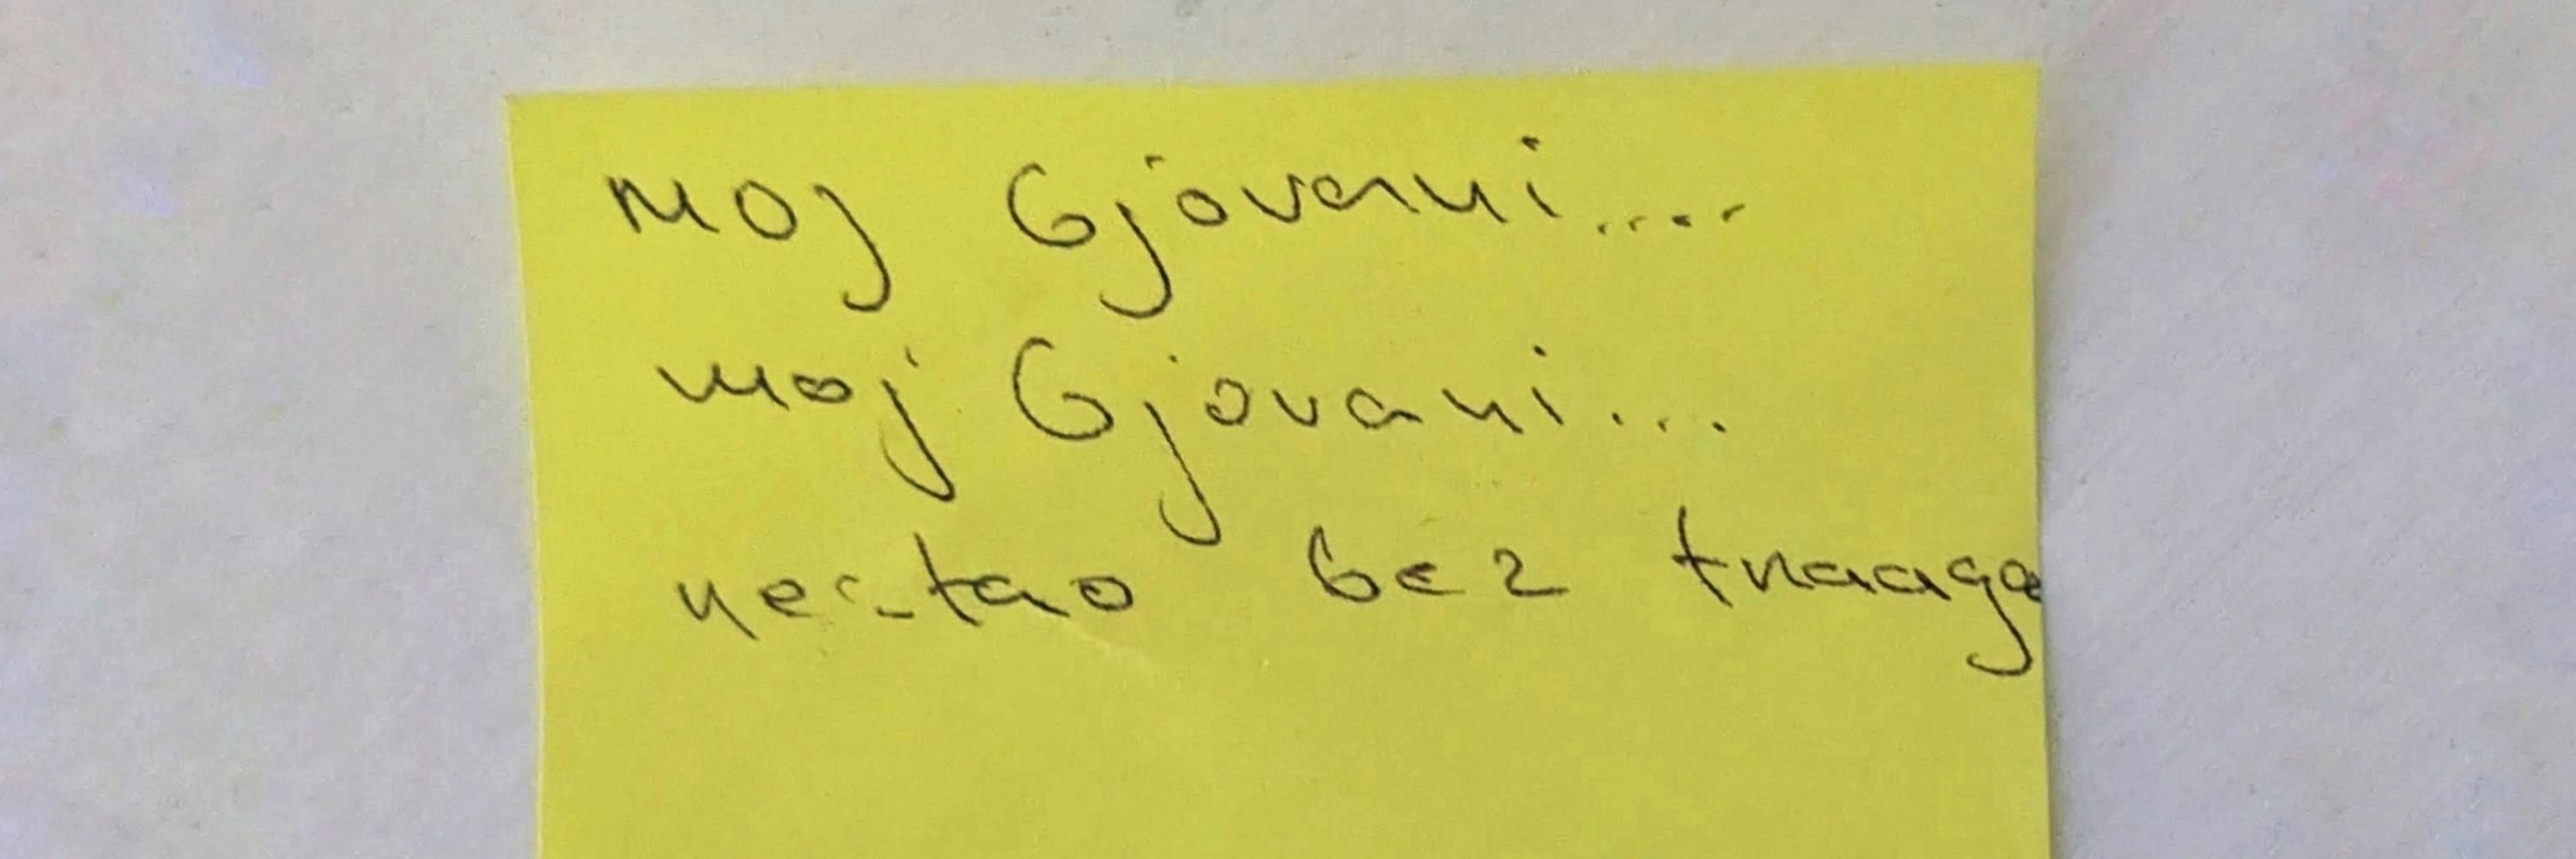 Moj Gjovani....
moj Gjovani...
nestao bez tnaaga